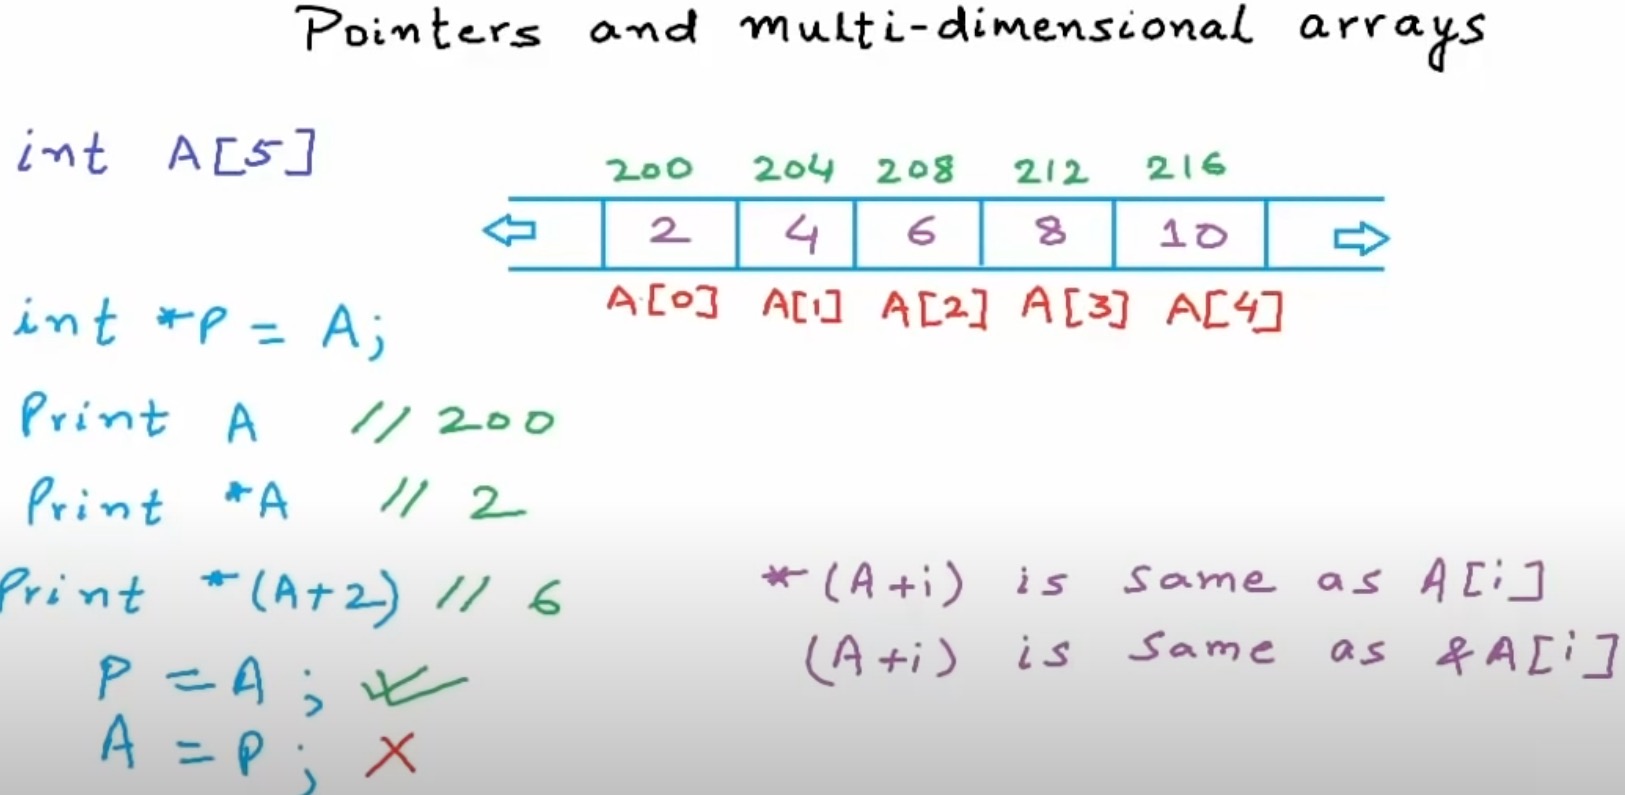 Pointers and multi-dimensional arrays
int A[5]
200 204 208 212 216
2 4 6 8 10
A[0] A[1] A[2] A[3] A[4]
int *P = A;
Print A // 200
Print *A // 2
Print *(A+2) // 6
*(A+i) is same as A[i]
(A+i) is same as &A[i]
P = A; ✓
A = P; X